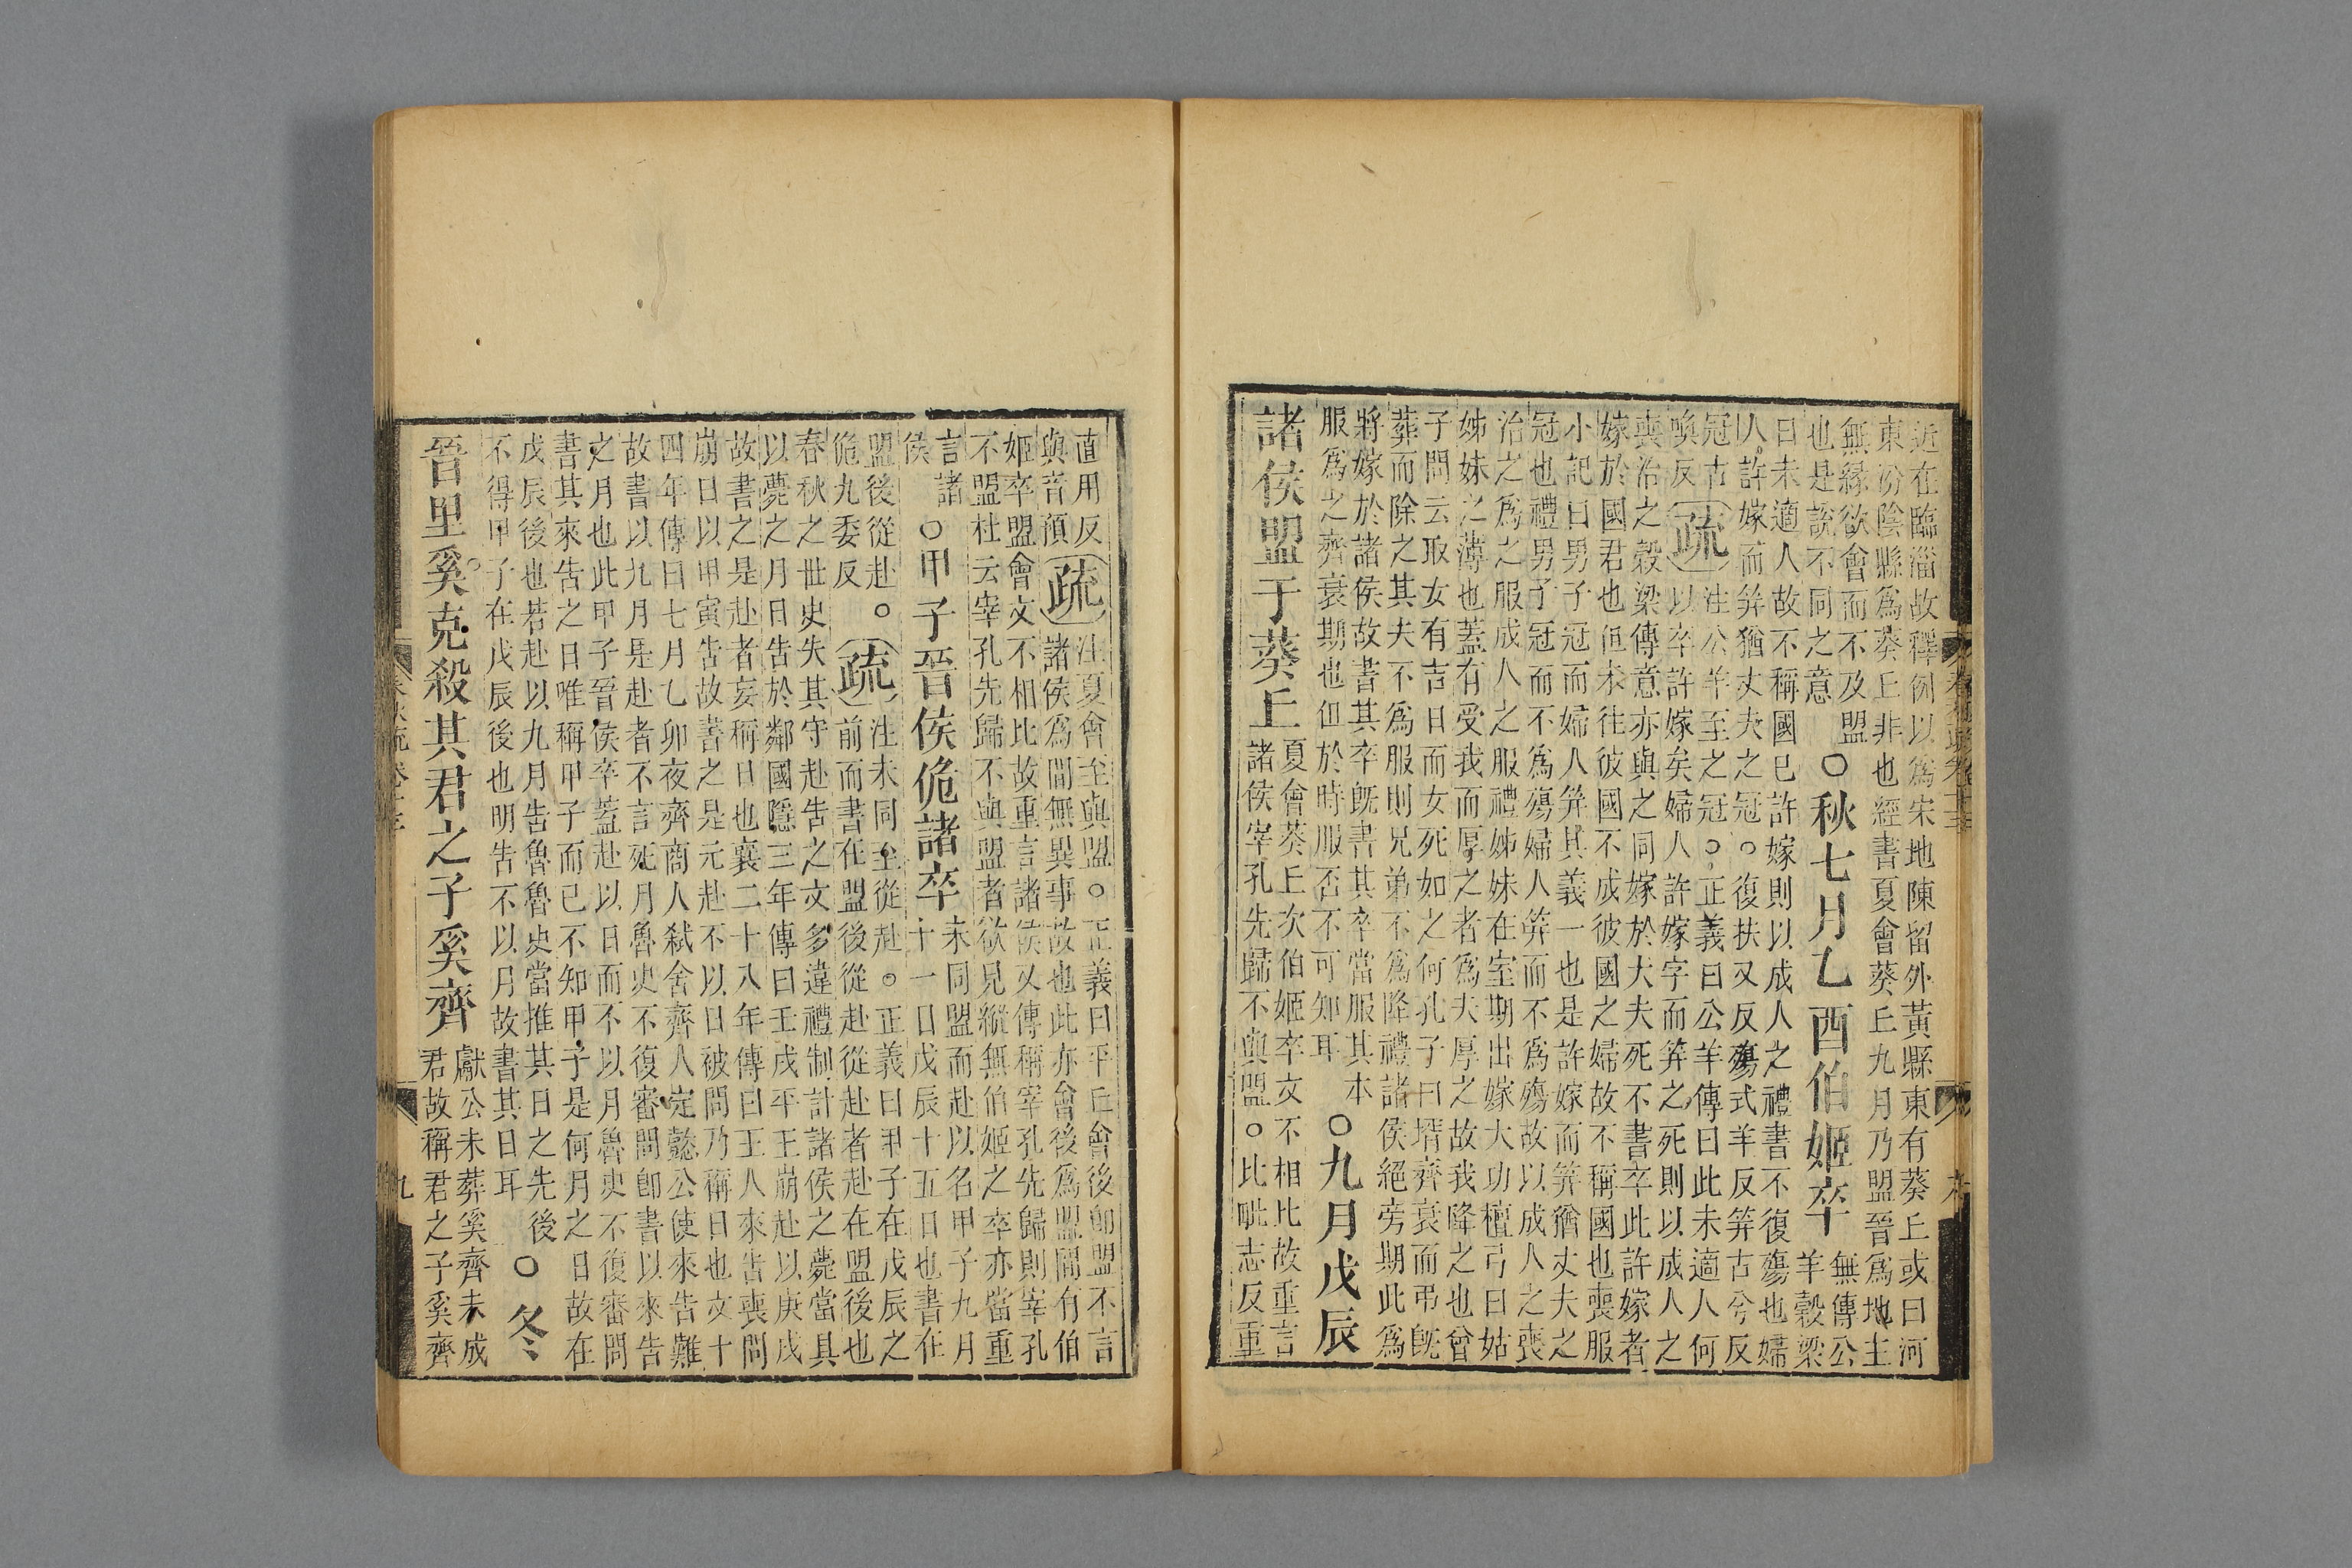 近在臨淄故釋例以爲宋地陳留外黃縣東有葵丘或曰河
東汾陰縣爲葵丘非也經書夏會葵丘九月乃盟晉爲地主
無緣欲會而不及盟
也是說不同之意
○秋七月乙酉伯姬卒
無傳公
羊穀梁
曰未適人故不稱國已許嫁則以成人之禮書不復殤也婦
人許嫁而笄猶丈夫之冠○復扶又反殤式羊反笄古兮反
冠古
喚反
疏
注公羊至之冠○正義曰公羊傳曰此未適人何
以卒許嫁矣婦人許嫁字而笄之死則以成人之
喪治之穀梁傳意亦與之同嫁於大夫死不書卒此許嫁者
嫁於國君也但未往彼國不成彼國之婦故不稱國也喪服
小記曰男子冠而婦人笄其義一也是許嫁而笄猶丈夫之
冠也禮男子冠而不爲殤婦人笄而不爲殤故以成人之喪
治之爲之服成人之服禮姊妹在室期出嫁大功檀弓曰姑
姊妹之薄也蓋有受我而厚之者爲夫厚之故我降之也曾
子問云取女有吉日而女死如之何孔子曰壻齊衰而弔既
葬而除之其夫不爲服則兄弟不爲降禮諸侯絕旁期此爲
將嫁於諸侯故書其卒既書其卒當服其本
服爲之齊衰期也但於時服否不可知耳
○九月戊辰
諸侯盟于葵丘
夏會葵丘次伯姬卒文不相比故重言
諸侯宰孔先歸不與盟○比毗志反重
直用反
與音預
疏
注夏會至與盟○正義曰平丘會後即盟不言
諸侯爲間無異事故也此亦會後爲盟間有伯
姬卒盟會文不相比故重言諸侯又傳稱宰孔先歸則宰孔
不盟杜云宰孔先歸不與盟者欲見縱無伯姬之卒亦當重
言諸
侯
○甲子晉侯佹諸卒
未同盟而赴以名甲子九月
十一日戊辰十五日也書在
盟後從赴○
佹九委反
疏
注未同至從赴○正義曰甲子在戊辰之
前而書在盟後從赴從赴者赴在盟後也
春秋之世史失其守赴告之文多違禮制計諸侯之薨當具
以薨之月日告於鄰國隱三年傳曰壬戌平王崩赴以庚戌
故書之是赴者妄稱日也襄二十八年傳曰王人來告喪問
崩日以甲寅告故書之是元赴不以日被問乃稱日也文十
四年傳曰七月乙卯夜齊商人弒舍齊人定懿公使來告難
故書以九月是赴者不言死月魯史不復審問即書以來告
之月也此甲子晉侯卒蓋赴以日而不以月魯史不復審問
書其來告之日唯稱甲子而已不知甲子是何月之日故在
戊辰後也若赴以九月告魯魯史當推其日之先後
不得甲子在戊辰後也明告不以月故書其日耳
○冬
晉里奚克殺其君之子奚齊
獻公未葬奚齊未成
君故稱君之子奚齊
九